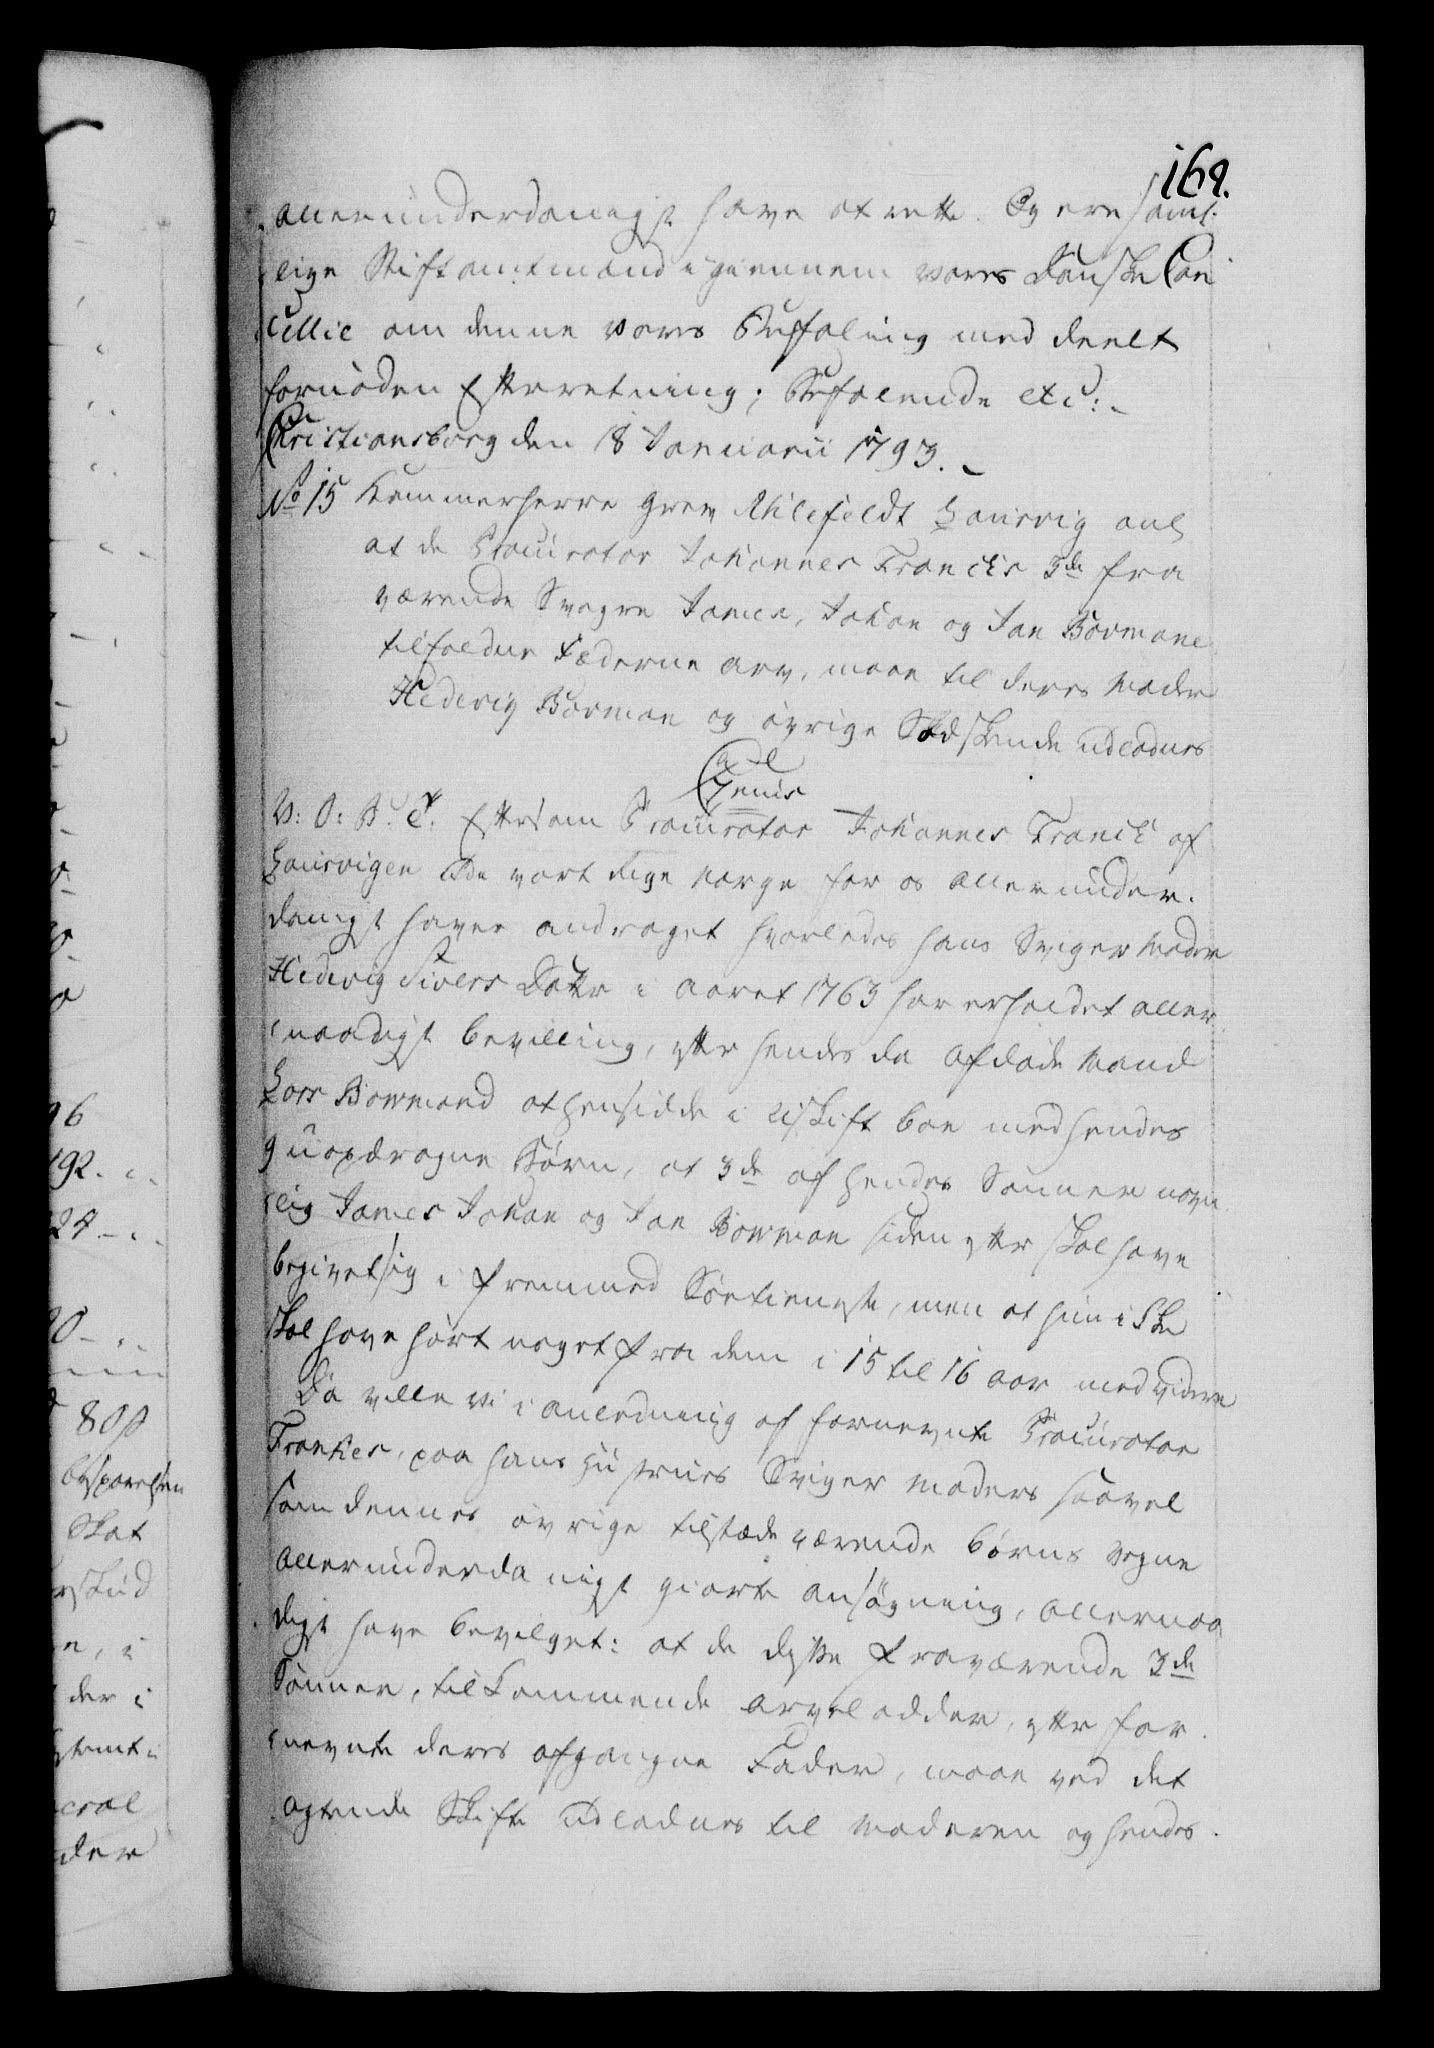 169.
allerunderdanigst have at rette. Og ere samt-
lige Stiftamtmænd igiennem vores Danske Can
cellie om denne vores Befaling meddeelt
fornøden Efterretning; Befalende etc:
Christiansborg den 18 Januarii 1793.
No 15 Kammerherre Grev Ahlefeldt Laurvig anl
at de Procurator Johannes Francks 3de fra
værende Svogre James, Johan og Jan Bovmane
tilfaldne Fæderne Arv, maae til deres Moder
Hedevig Bovman og øvrige Sødskende udlodnes
Genus
V: O: B: T: Eftersom Procurator Johannes Franck af
Laurvigen udi vort Rige Norge for os allerunder-
danigst haver andraget hvorledes hans Sviger Moder
Hedevig Sivers Datter i Aaret 1763 har erholdet aller
naadigst bevilling, efter hendes da afdøde Mand
Lars Bowmand at hensidde i uskift boe med hendes
9 uopdragne Børn, at 3de af hendes Sønner navn
lig James Johan og Jan Bowman siden efter skal have
begivet sig i fremmed Søetieneste, men at hun i Ske
skal have hørt noget fra dem i 15 til 16 aar med videre
Da ville vi i anledning af fornevnte Procurator
Frankes, paa hans Hustrues Sviger Moders saavel
som dennes øvrige tilstædeværende børns vegne
allerunderdanigst giorte ansøgning, allernaa
digst have bevilget: at de disse fraværende 3de
Sønner, tilkommende arvelodder, efter for-
nevnte deres afgangne Fader, maae ved det
agtende Skifte udlodnes til Moderen og hendes
96
192.
24
80
Skat
der i
der